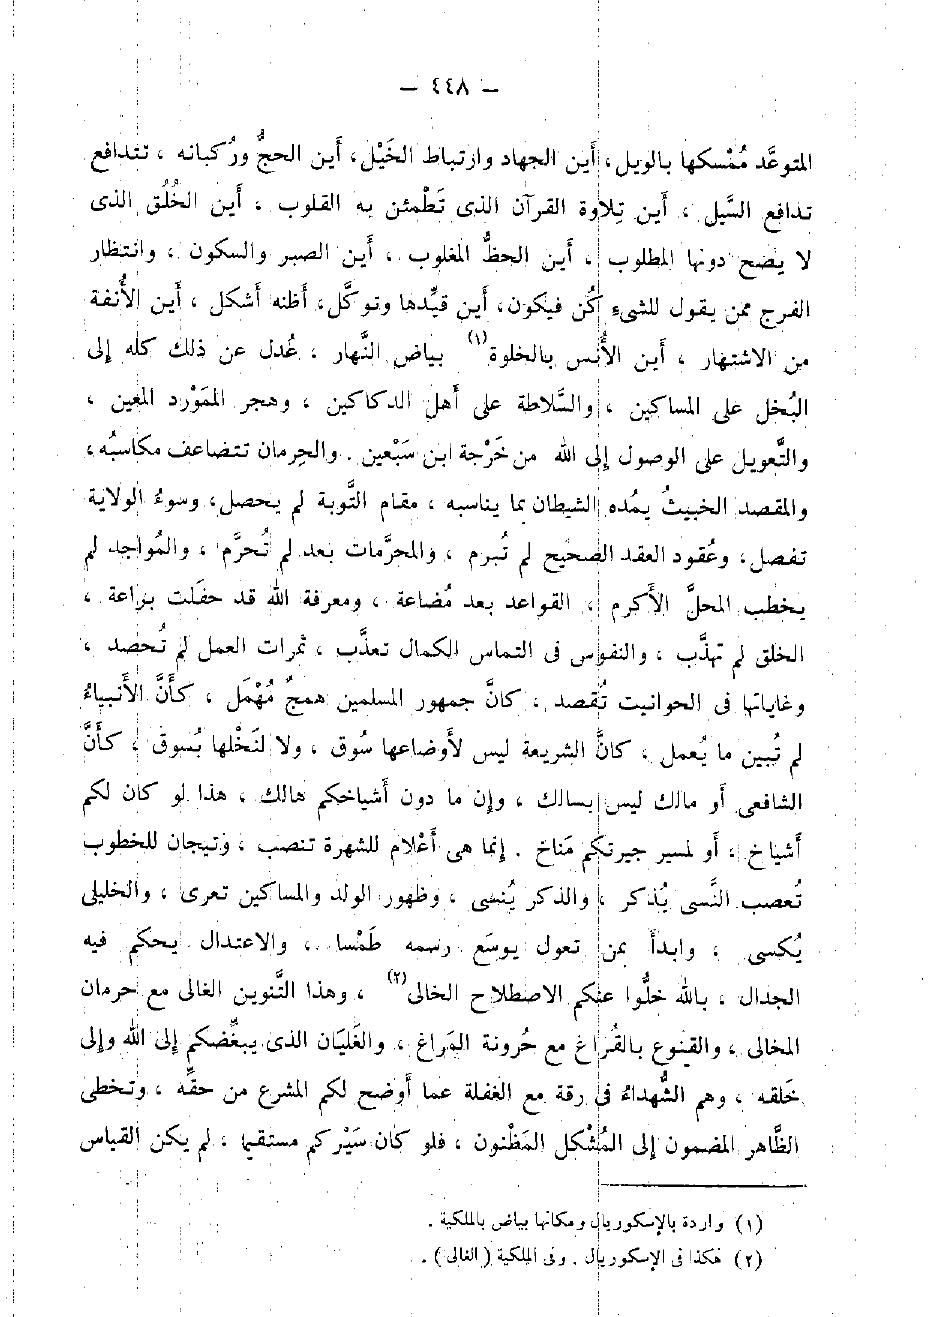 — ٤٤٨ —
المتوعَّد مُمْسكها بالويل، أَين الجهاد وارتباط الخَيْل، أَين الحجُّ ورُكبانه ، تتدافع
تدافع السَّيل ، أَين تِلاوة القرآن الذى تَطْمئن به القلوب ، أَين الخُلُق الذى
لا يضح دونها المطلوب ، أَين الحظُّ المغلوب ، أَين الصبر والسكون ، وانتظار
الفرج ممن يقول للشىء كُن فيكون، أَين قيِّدها وتوكَّل، أَظنه أَشكل ، أَين الأُنفة
من الاشتهار ، أَين الأُنس بالخلوة(١) بياض النَّهار ، عُدل عن ذلك كله إلى
البُخل على المساكين ، والسَّلاطة على أَهل الدكاكين ، وهجر المَوْرد المَعين ،
والتَّعويل على الوصول إلى الله من خَرْجة ابن سَبْعين . والحِرمان تتضاعف مكاسبُه،
والمقصد الخبيثُ يمُده الشيطان بما يناسبه ، مقام التَّوبة لم يحصل، وسوءُ الولاية
تفصل، وعُقود العقد الصحيح لم تُبرم ، والمحرَّمات بعد لم تُحرَّم ، والمُواجد لم
يخطب المحلَّ الأَكرم ، القواعد بعد مُضاعة ، ومعرفة الله قد حفَلت بزاعة ،
الخلق لم تهذَّب ، والنفوس فى التماس الكمال تعذَّب ، ثمرات العمل لم تُحصد ،
وغاياتها فى الحوانيت تُقصد ، كانَّ جمهور المسلمين همجٌ مُهْمَل ، كأَنَّ الأَنبياءُ
لم تُبين ما يُعمل ، كانَّ الشريعة ليس لأَوضاعها سُوق ، ولا لنَخْلها بُسوق ، كأَنَّ
الشافعى أو مالك ليس بسالك ، وإن ما دون أَشياخكم هالك ، هذا لو كان لكم
أَشياخ ، أَو لمسير جيرتكم مَناخ . إنما هى أَعْلام للشهرة تنصب ، وتيجان للخطوب
تُعصب النَّسى يُذكر ، والذكر يُنسى ، وظهور الولد والمساكين تعرى ، والخليلى
يُكسى ، وابدأَ بمن تعول يوسَع رسمه طَمْسا ، والاعتدال يحكم فيه
الجدال ، بالله خلُّوا عنكم الاصطلاح الخالى(٢) ، وهذا التَّنوين الغالى مع حرمان
المخالى ، والقنوع بالقُراغ مع حُرونة المَراغ ، والغَلَيَان الذى يبغِّضكم إلى الله وإلى
خَلقه ، وهم الشُّهداءُ فى رقة مع الغفلة عما أَوضح لكم المشرع من حقَّه ، وتخطى
الظَّاهر المضمون إلى المُشْكل المَظْنون ، فلو كان سَيْركم مستقيما ، لم يكن القياس
(١) واردة بالإسكوريال ومكانها بياض بالملكية .
(٢) هكذا فى الإسكوريال . وفى الملكية ( الغالى ) .